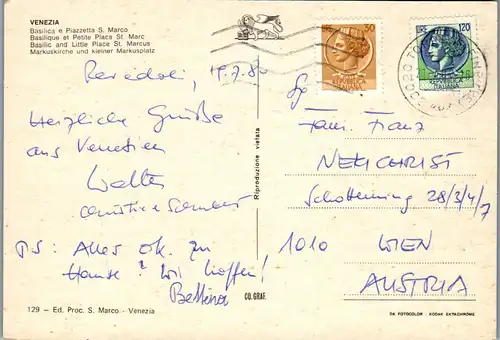 VENEZIA
Basilica e Piazzetta S. Marco
Basilique et Petite Place St. Marc
Basilic and Little Place St. Marcus
Markuskirche und kleiner Markusplatz
Herzliche Grüße
aus Venetien
Walter
PS: Alles ok. zu
Hause? Wir hoffen!
Bettina
129 - Ed. Proc. S. Marco - Venezia
Riproduzione vietata
CO. GRAF.
50
120
Fam. Franz
NEKHCHRIST
Schottenring 28/3/4/7
1010 WIEN
AUSTRIA
DA FOTOCOLOR - KODAK EKTACHROME